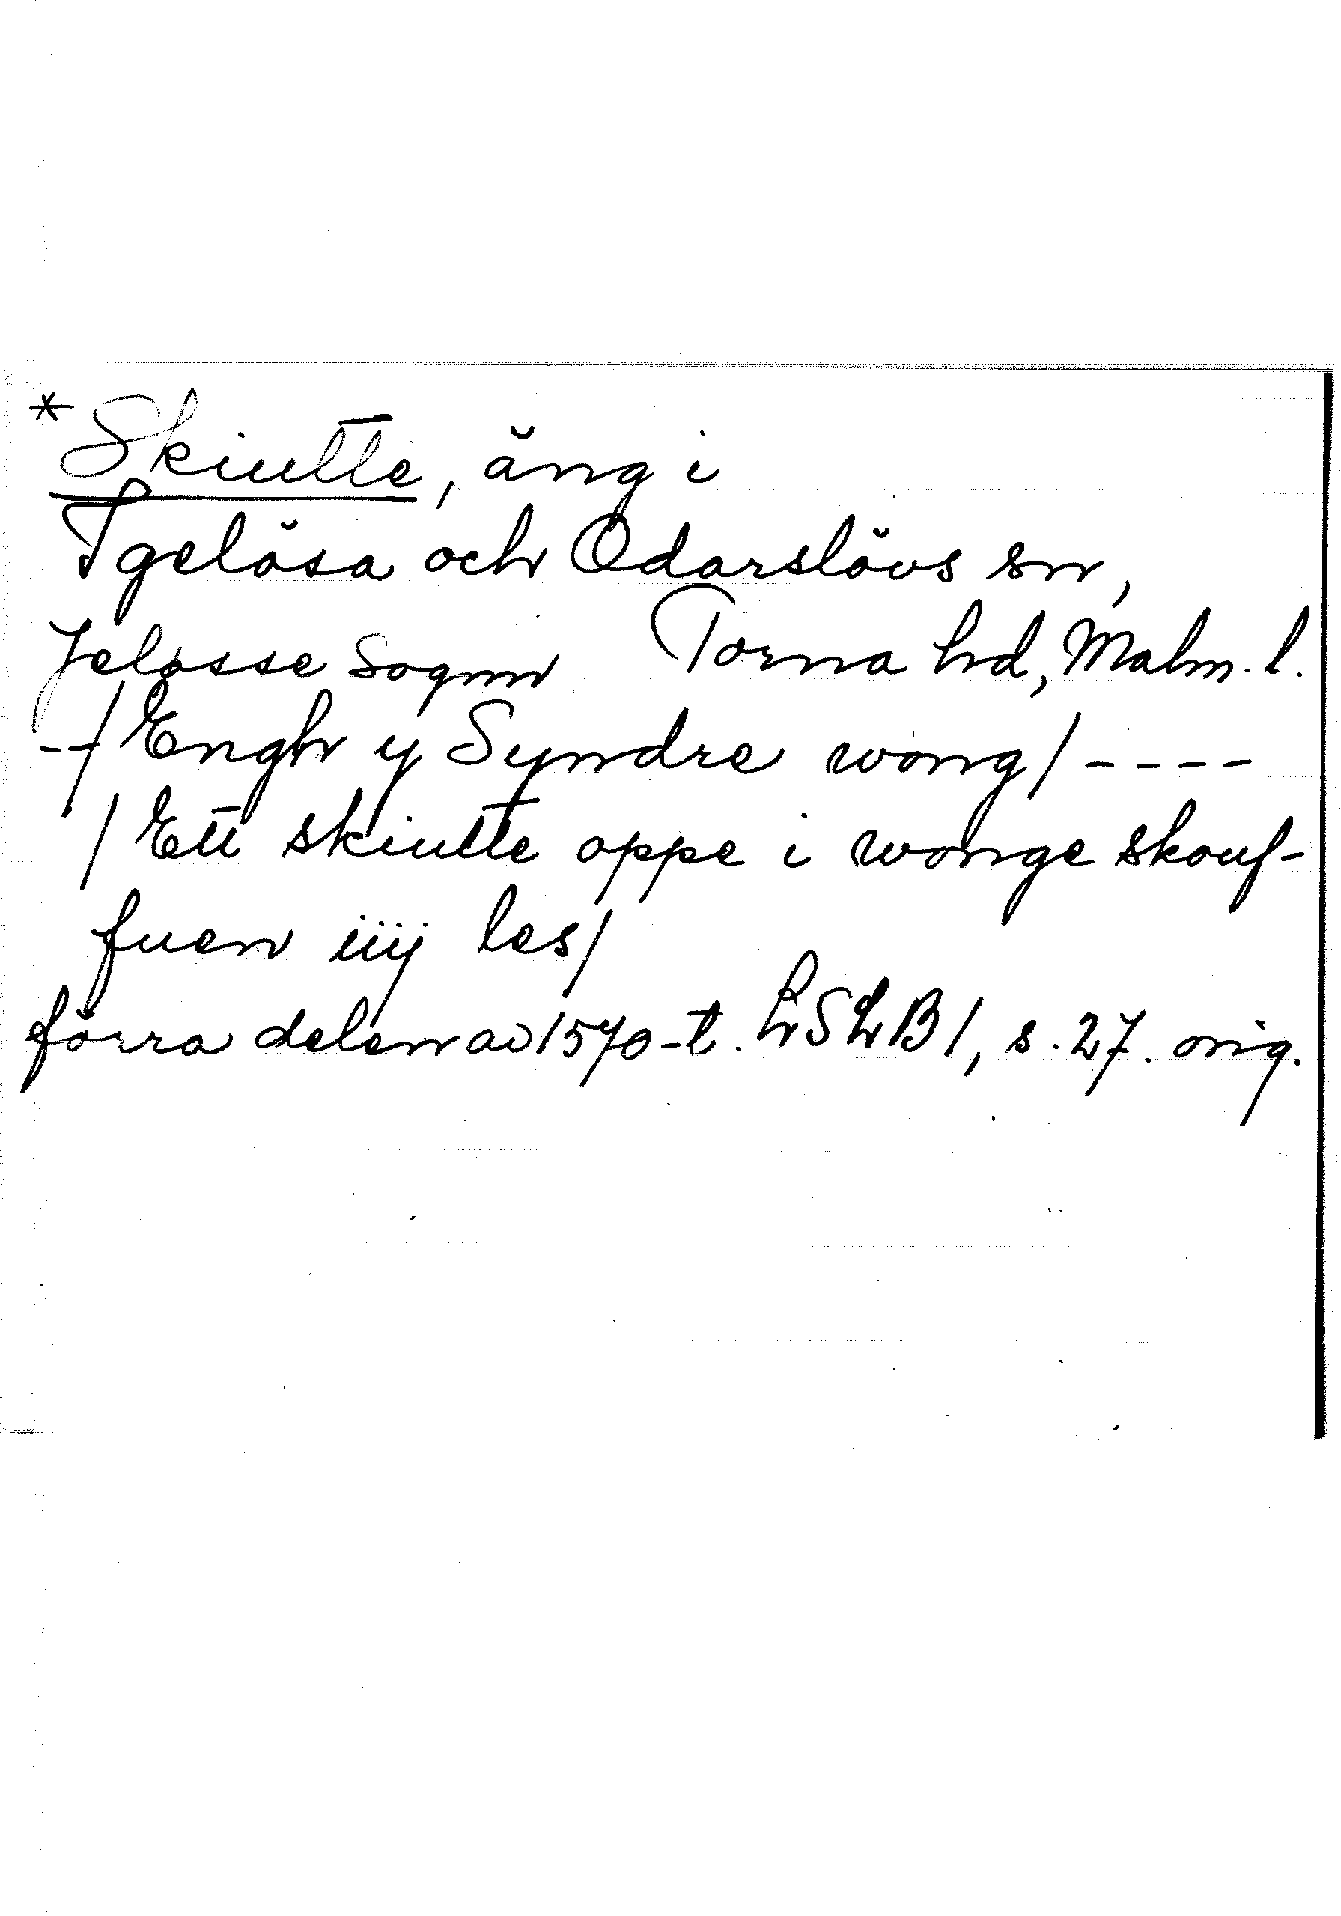 *Skiutte, äng i
Igelösa och Odarslövs sn,
Jelosse Sognn Torna hd, Malm. l.
--/Engh y Syndre wong/----
/Ett skiutte oppe i wonge skouf-
fuen iiij les/
förra delen av 1570-t. LSLB1, s. 27. orig.